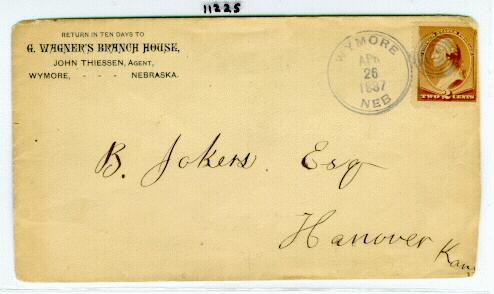 11225
RETURN IN TEN DAYS TO
G. WAGNER'S BRANCH HOUSE,
JOHN THIESSEN, AGENT,
WYMORE, - - - NEBRASKA.
WYMORE
APR
26
1887
NEB
TWO 2 CENTS
B. Jokers Esq
Hanover Kans